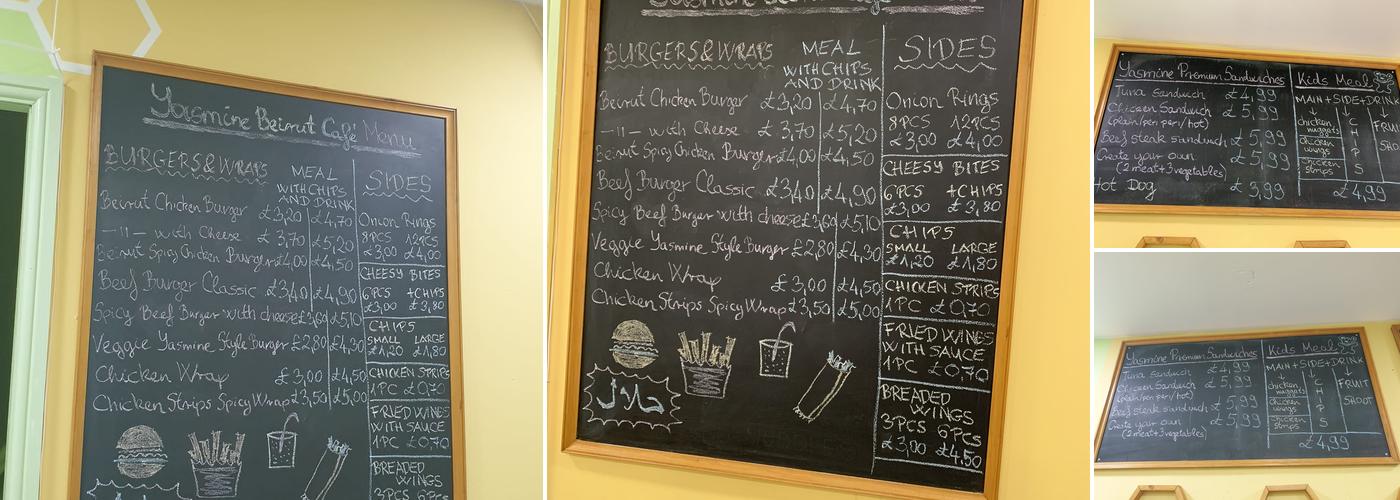 Yasmine Beirut Café Menu
BURGERS & WRAPS
MEAL
WITH CHIPS
AND DRINK
Beirut Chicken Burger £3,20 £4,70
—11— with Cheese £3,70 £5,20
Beirut Spicy Chicken Burger £4,00 £4,50
Beef Burger Classic £3,40 £4,90
Spicy Beef Burger with cheese £3,60 £5,10
Veggie Yasmine Style Burger £2,80 £4,30
Chicken Wrap £3,00 £4,50
Chicken Strips Spicy Wrap £3,50 £5,00
SIDES
Onion Rings
8PCS 12PCS
£3,00 £4,00
CHEESY BITES
6PCS +CHIPS
£3,00 £3,80
CHIPS
SMALL LARGE
£1,20 £1,80
CHICKEN STRIPS
1PC £0,70
FRIED WINGS
WITH SAUCE
1PC £0,70
BREADED
WINGS
3PCS 6Pcs
BURGERS & WRAPS
MEAL
WITH CHIPS
AND DRINK
Beirut Chicken Burger £3,20 £4,70
—11— with Cheese £3,70 £5,20
Beirut Spicy Chicken Burger £4,00 £4,50
Beef Burger Classic £3,40 £4,90
Spicy Beef Burger with cheese £3,60 £5,10
Veggie Yasmine Style Burger £2,80 £4,30
Chicken Wrap £3,00 £4,50
Chicken Strips Spicy Wrap £3,50 £5,00
حلال
SIDES
Onion Rings
8PCS 12PCS
£3,00 £4,00
CHEESY BITES
6PCS +CHIPS
£3,00 £3,80
CHIPS
SMALL LARGE
£1,20 £1,80
CHICKEN STRIPS
1PC £0,70
FRIED WINGS
WITH SAUCE
1PC £0,70
BREADED
WINGS
3PCS 6Pcs
£3,00 £4,50
Yasmine Premium Sandwiches
Tuna Sandwich £4,99
Chicken Sandwich £5,99
(plain/peri peri/hot)
Beef steak sandwich £5,99
Create your own £5,99
(2 meat+3 vegetables)
Hot Dog £3,99
Kids Meal
MAIN+SIDE+DRIN
chicken
nuggets
chicken
wings
chicken
strips
C
H
I
P
S
FRU
SHO
£4,99
Yasmine Premium Sandwiches
Tuna Sandwich £4,99
Chicken Sandwich £5,99
(plain/peri peri/hot)
Beef steak sandwich £5,99
Create your own £5,99
(2 meat+3 vegetables)
Kids Meal
MAIN+SIDE+DRINK
chicken
nuggets
chicken
wings
chicken
strips
C
H
I
P
S
FRUIT
SHOOT
£4,99